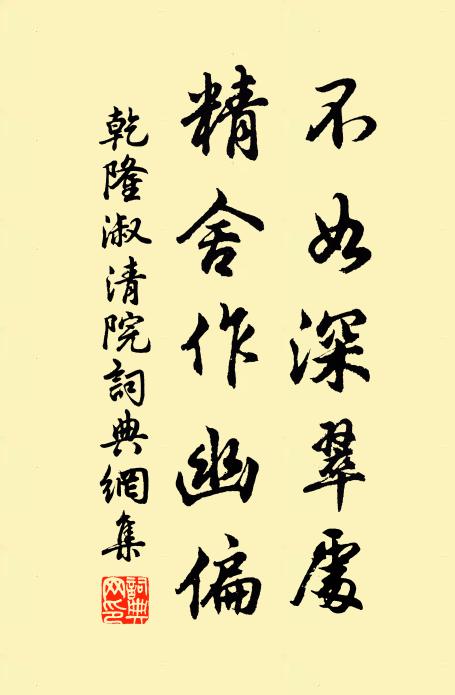 不如深翠處
精舍作幽偏
乾隆淑清院詞典網集
詞典
网印